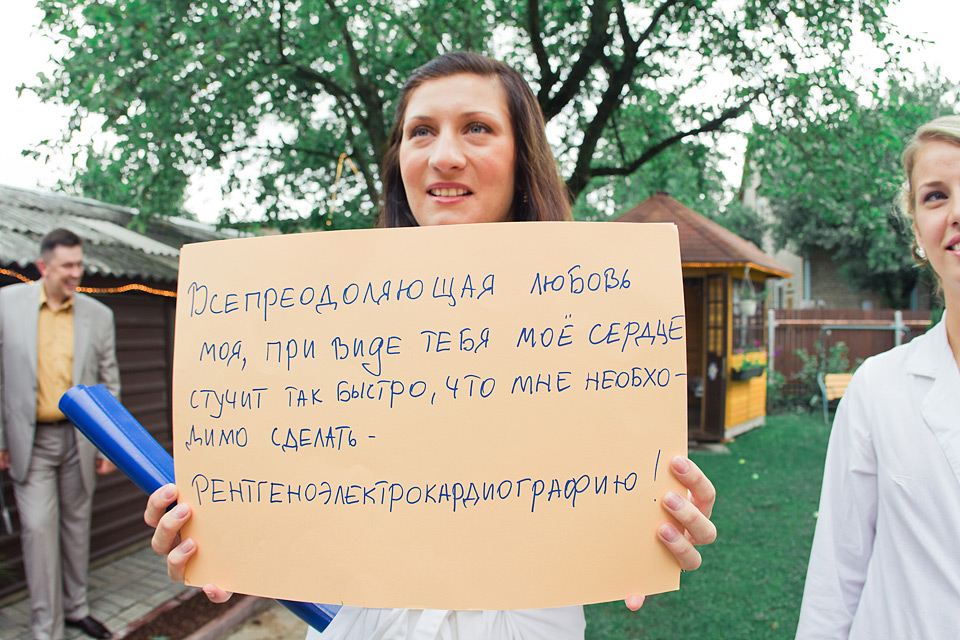 Всепреодоляющая любовь
моя, при виде тебя моё сердце
стучит так быстро, что мне необхо-
димо сделать -
рентгеноэлектрокардиографию!